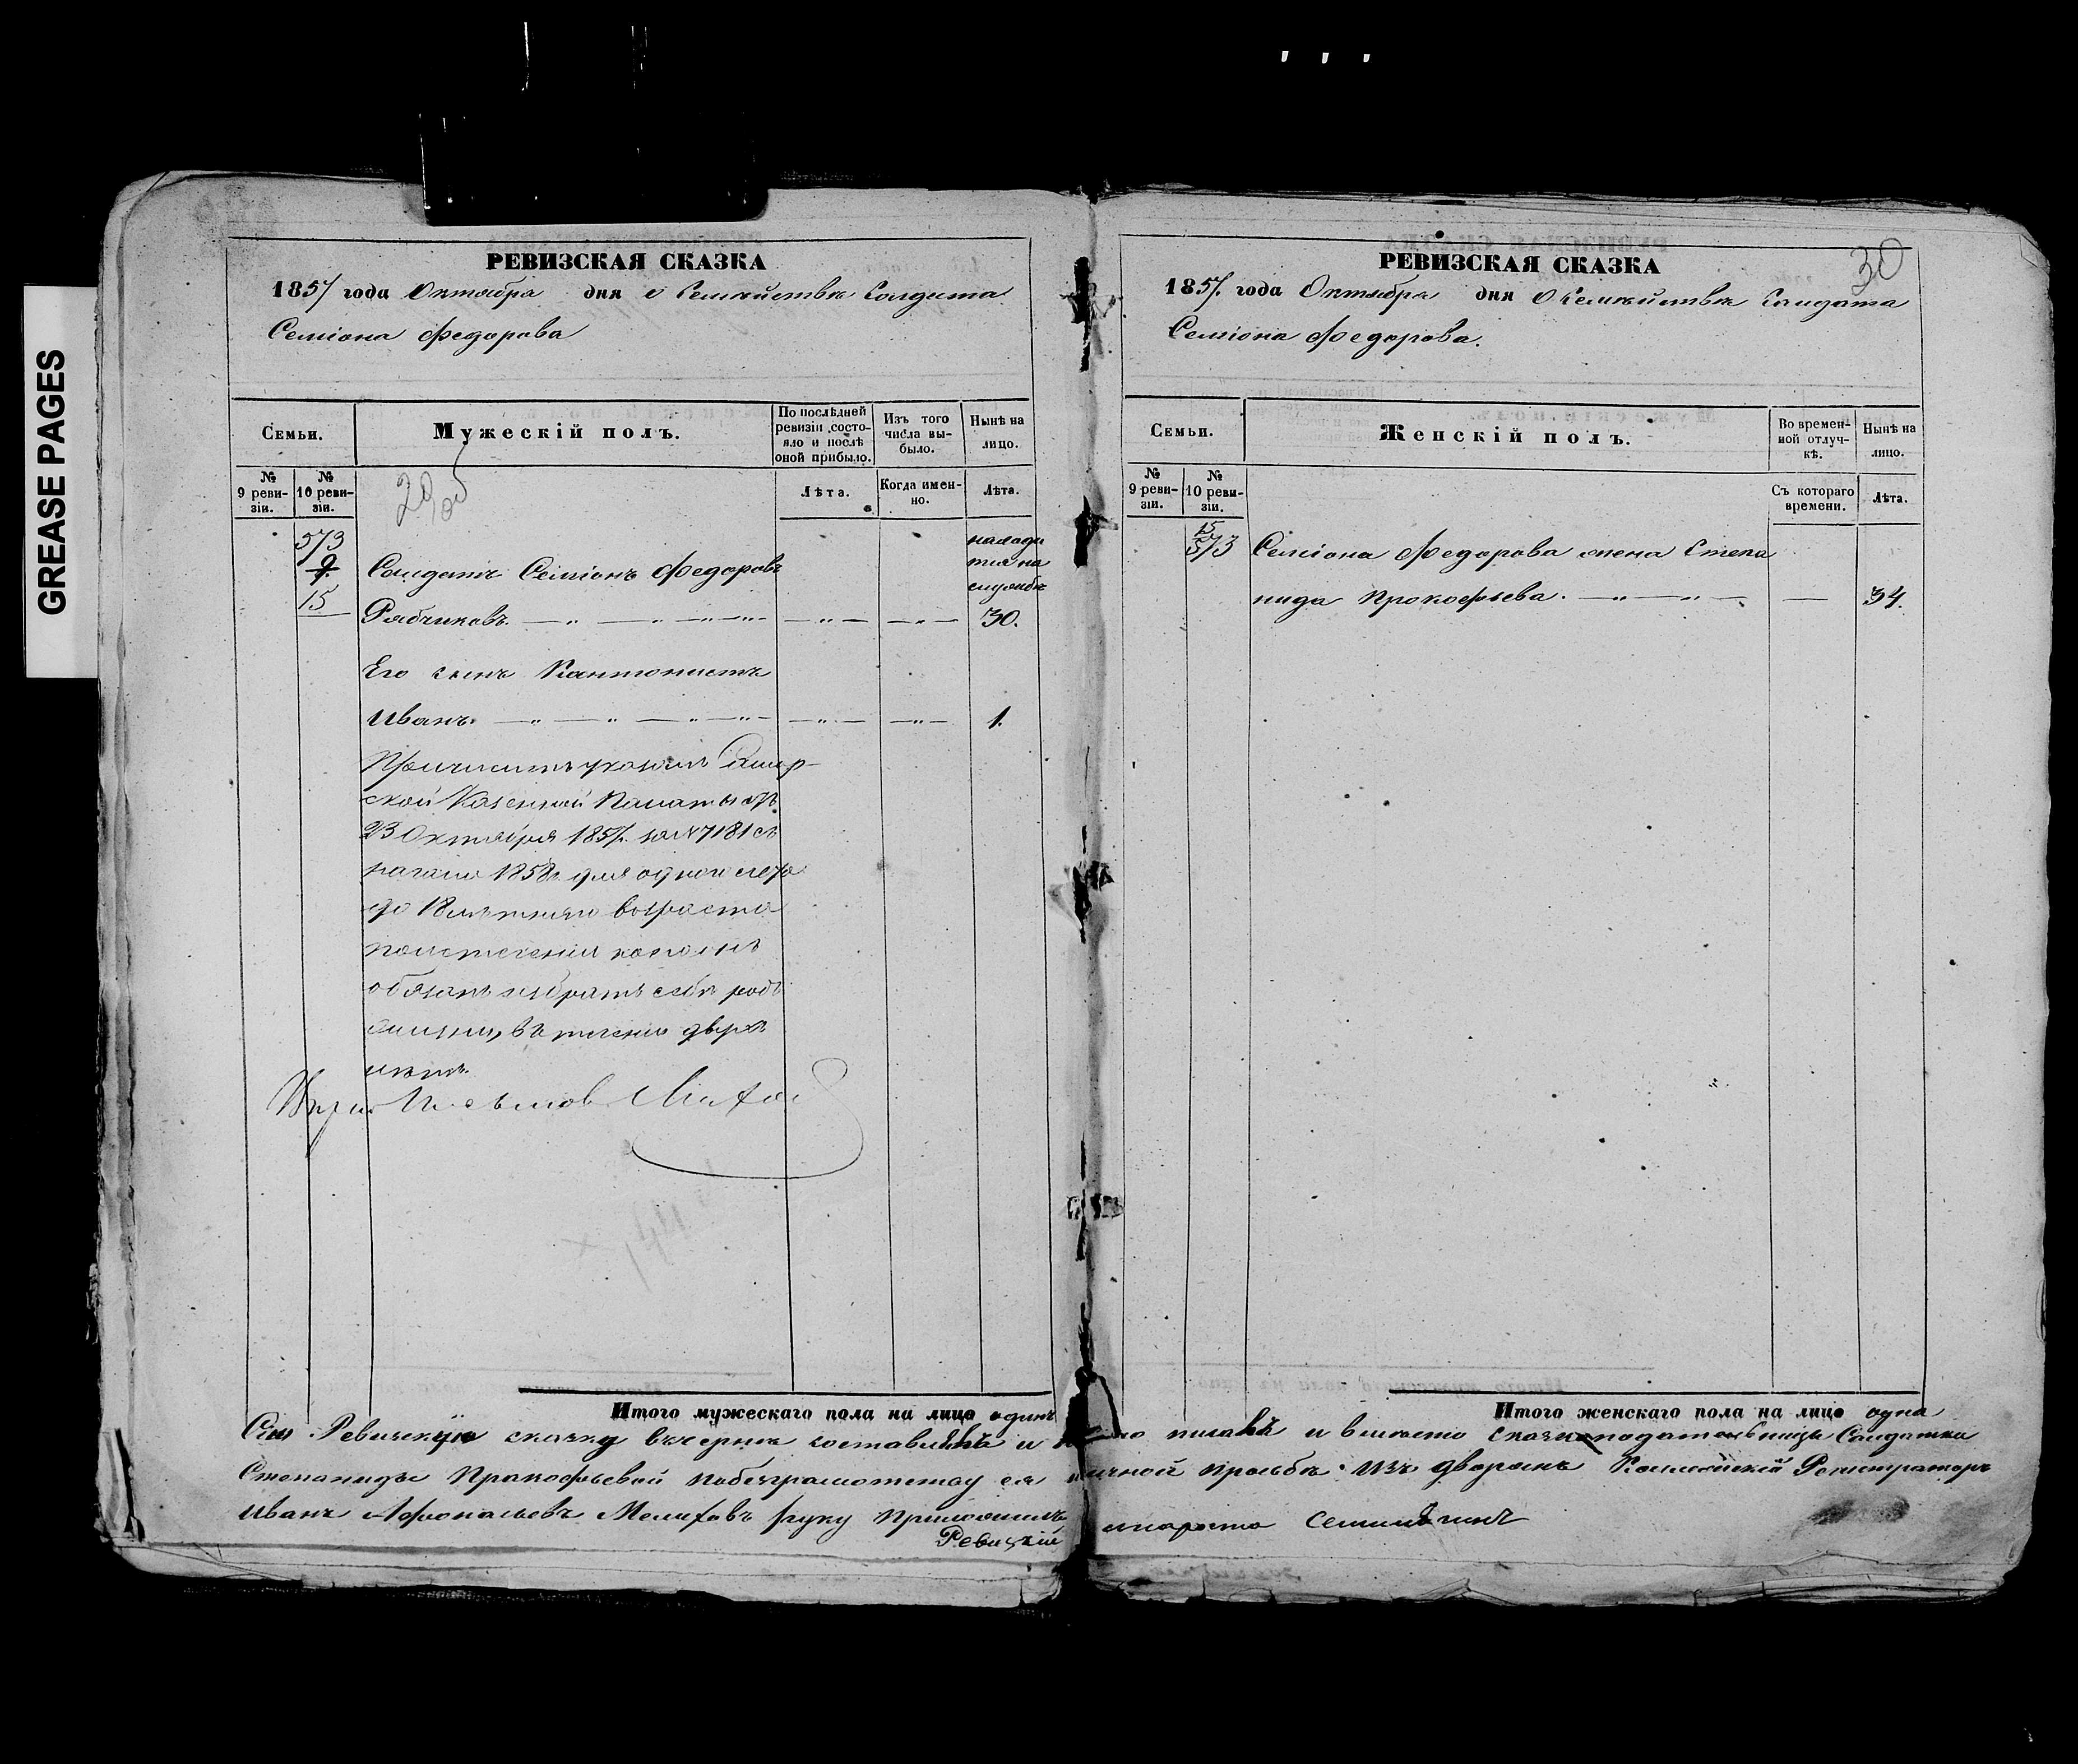 GREASE PAGES
РЕВИЗСКАЯ СКАЗКА
1857 года Октября дня о Семействе Солдата
Семіона Федорова
Семьи.
Мужескій полъ.
По послѣдней ревизіи состо-
яло и послѣ оной прибыло.
Изъ того числа вы-
было.
Нынѣ на лицо.
№ 9 реви-
зіи.
№ 10 реви-
зіи.
29 об
Лѣта.
Когда имен-
но.
Лѣта.
573
9.
15
находи
тся на
службѣ
Солдатъ Семіонъ Федоровъ
Рябчиковъ. 30.
Его сынъ Кантонистъ
Иванъ. 1.
Причисленъ указомъ
ской Казенной Палаты отъ
23 Октября 1857 г. за № 7181 съ
начала 1858 г. для одного счета
до 18 лѣтняго возраста
по истеченіи котораго
обязанъ избрать себѣ родъ
жизни, въ теченіи двухъ
лѣтъ.
Итого мужескаго пола на лицо одинъ
РЕВИЗСКАЯ СКАЗКА
30
1857. года Октября дня о Семействѣ Солдата
Семіона Федорова.
Семьи.
Женскій полъ.
Во времен-
ной отлуч-
кѣ.
Нынѣ на лицо.
№ 9 реви-
зіи.
№ 10 реви-
зіи.
Съ котораго времени.
Лѣта.
15
573
Семіона Федорова жена Степа
нида Прокофьева. 34.
Итого женскаго пола на лицо одна
Сію Ревизскую сказку вчернѣ составилъ и писалъ и вмѣсто сказкоподательницы Солдатки
Степаниды Прокофьевой по безграмотству ея личной прозьбѣ изъ дворянъ Коллежскій Регистраторъ
Иванъ Афонасьевъ Мелиховъ руку приложилъ
Ревизскій староста